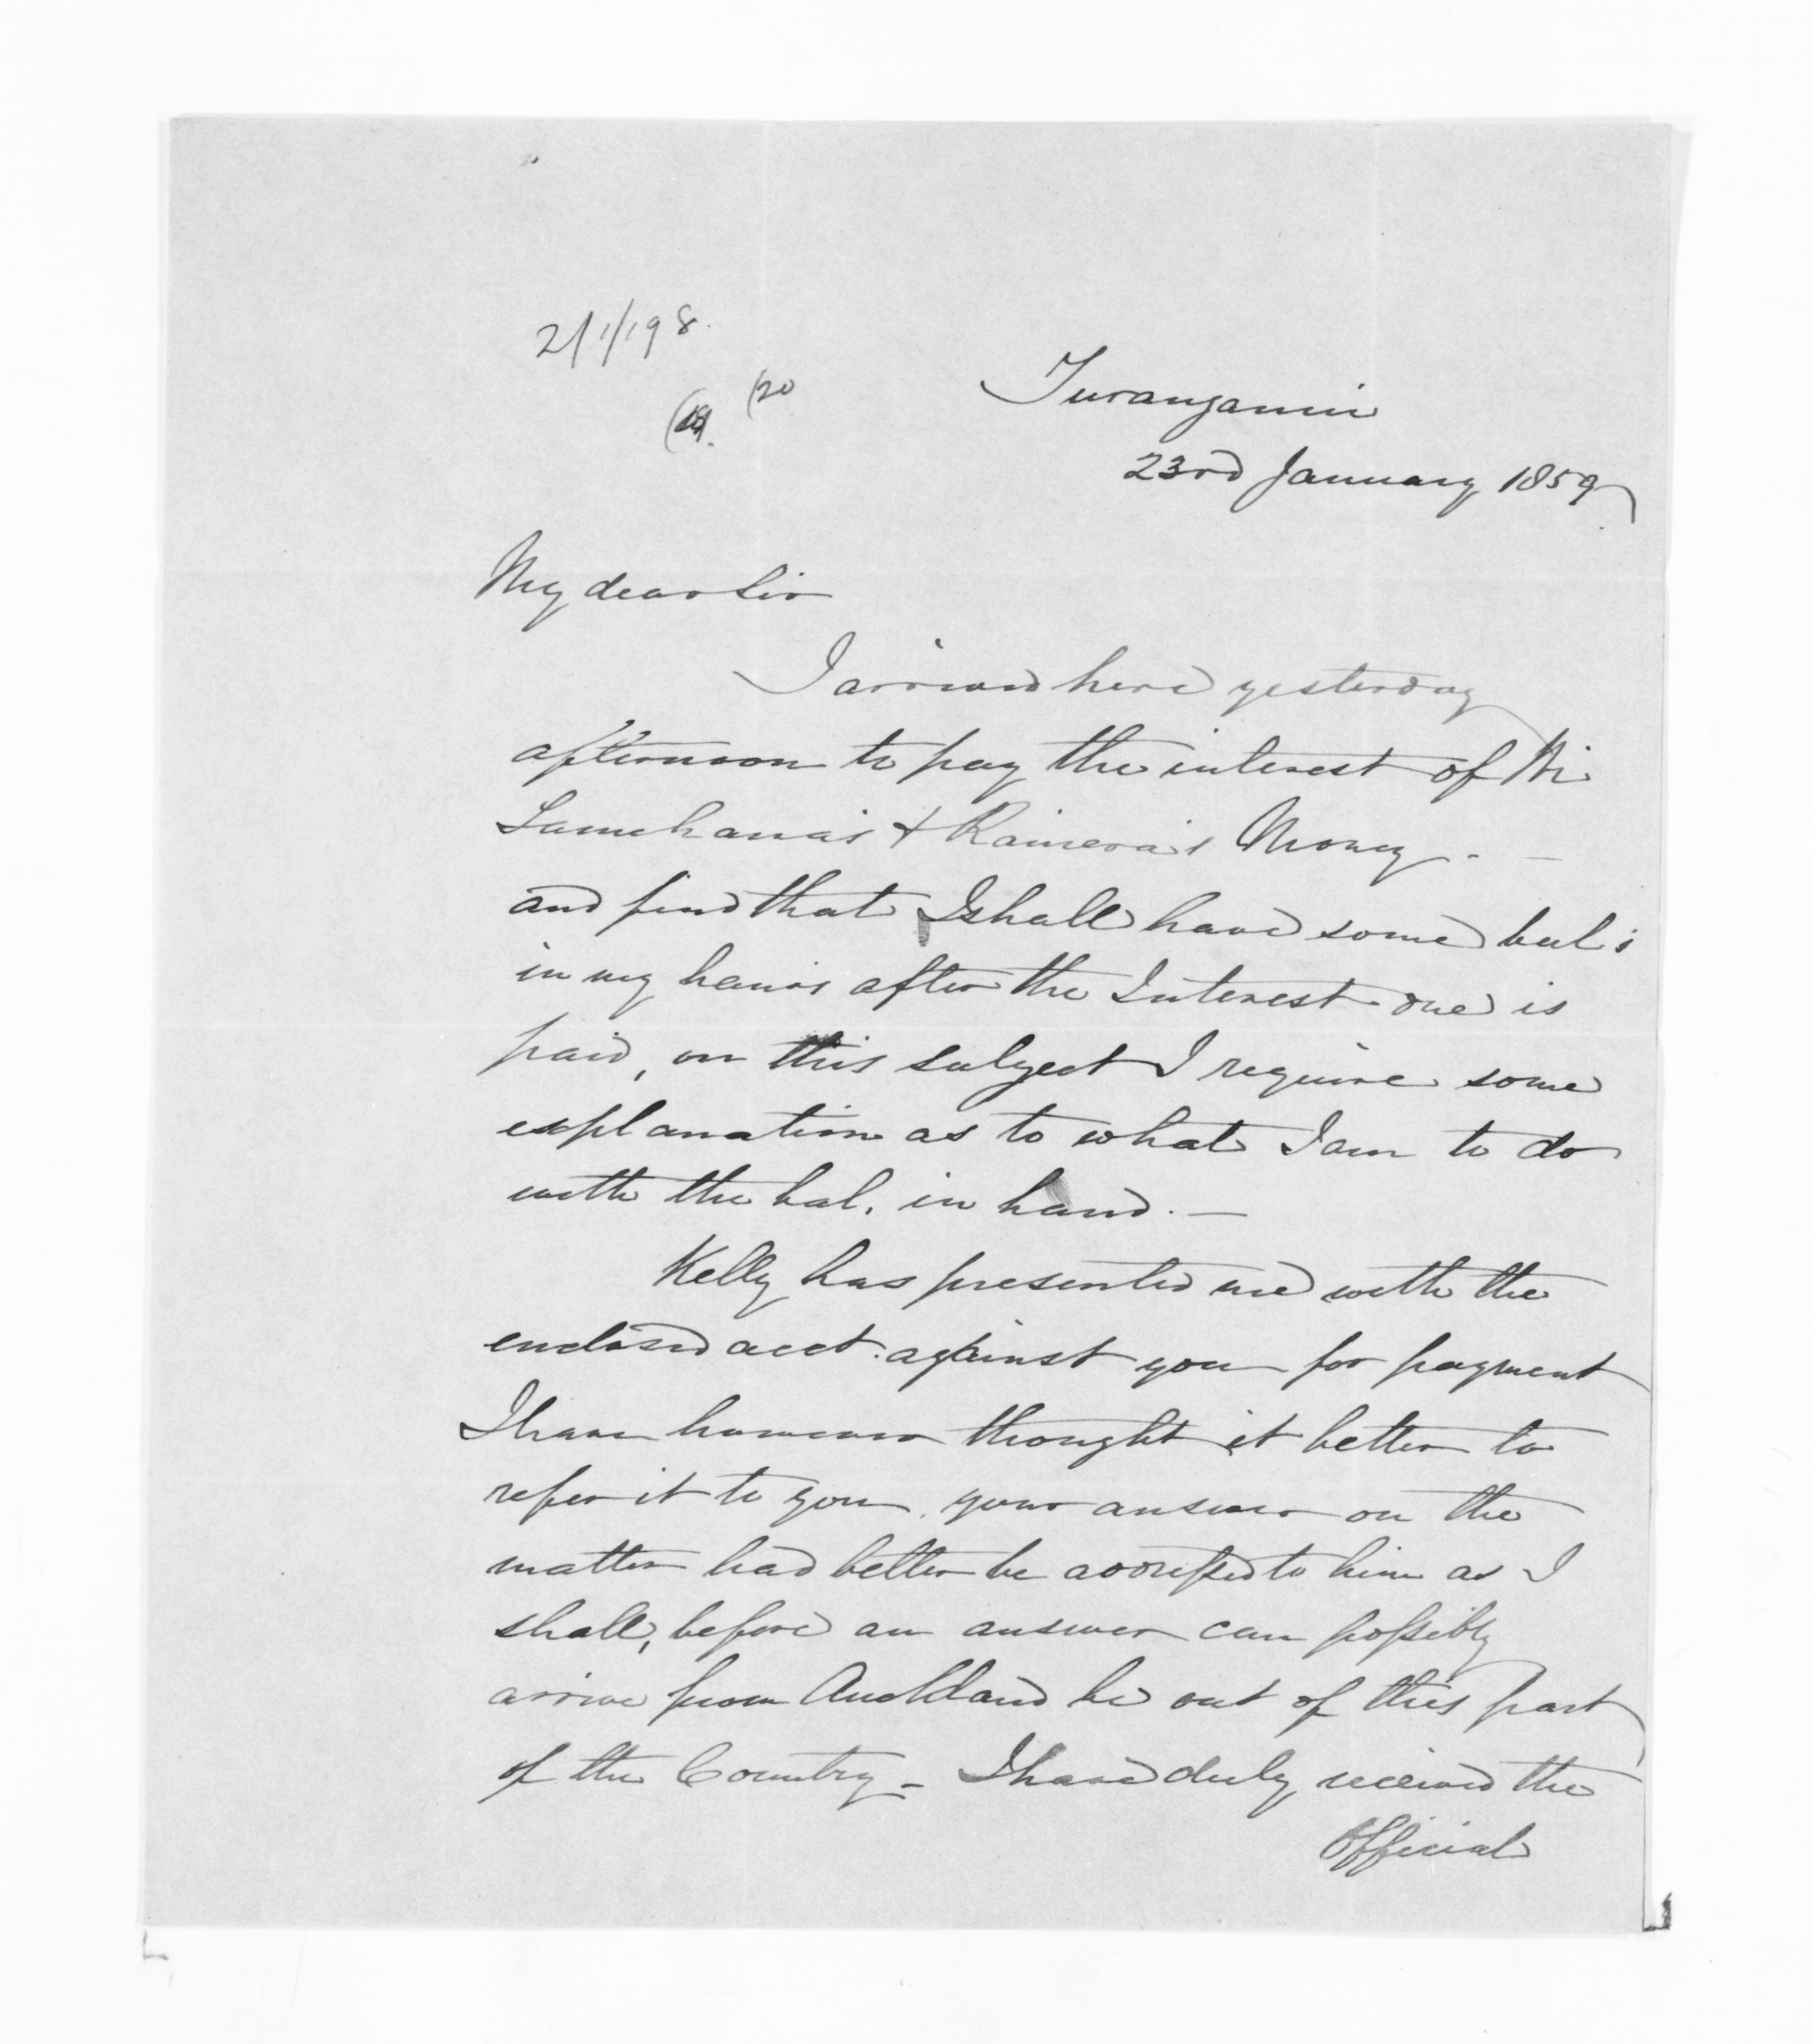 2/1/198.
(20
Turanganui
23rd January 1859
My dear Sir
I arrived here yesterday
afternoon to pay the interest of Wi
& Raiwera's Money. —
and find that I shall have some bal:
in my hands after the Interest due is
paid, on this subject I require some
explanation as to what I am to do
with the bal. in hand. —
Kelly has presented me with the
enclosed acct. against you for payment
I have however thought it better to
refer it to you, your answer on the
matter had better be addressed to him as I
shall, before an answer can possibly
arrive from Auckland be out of this part
of the Country – I have duly received the
Official